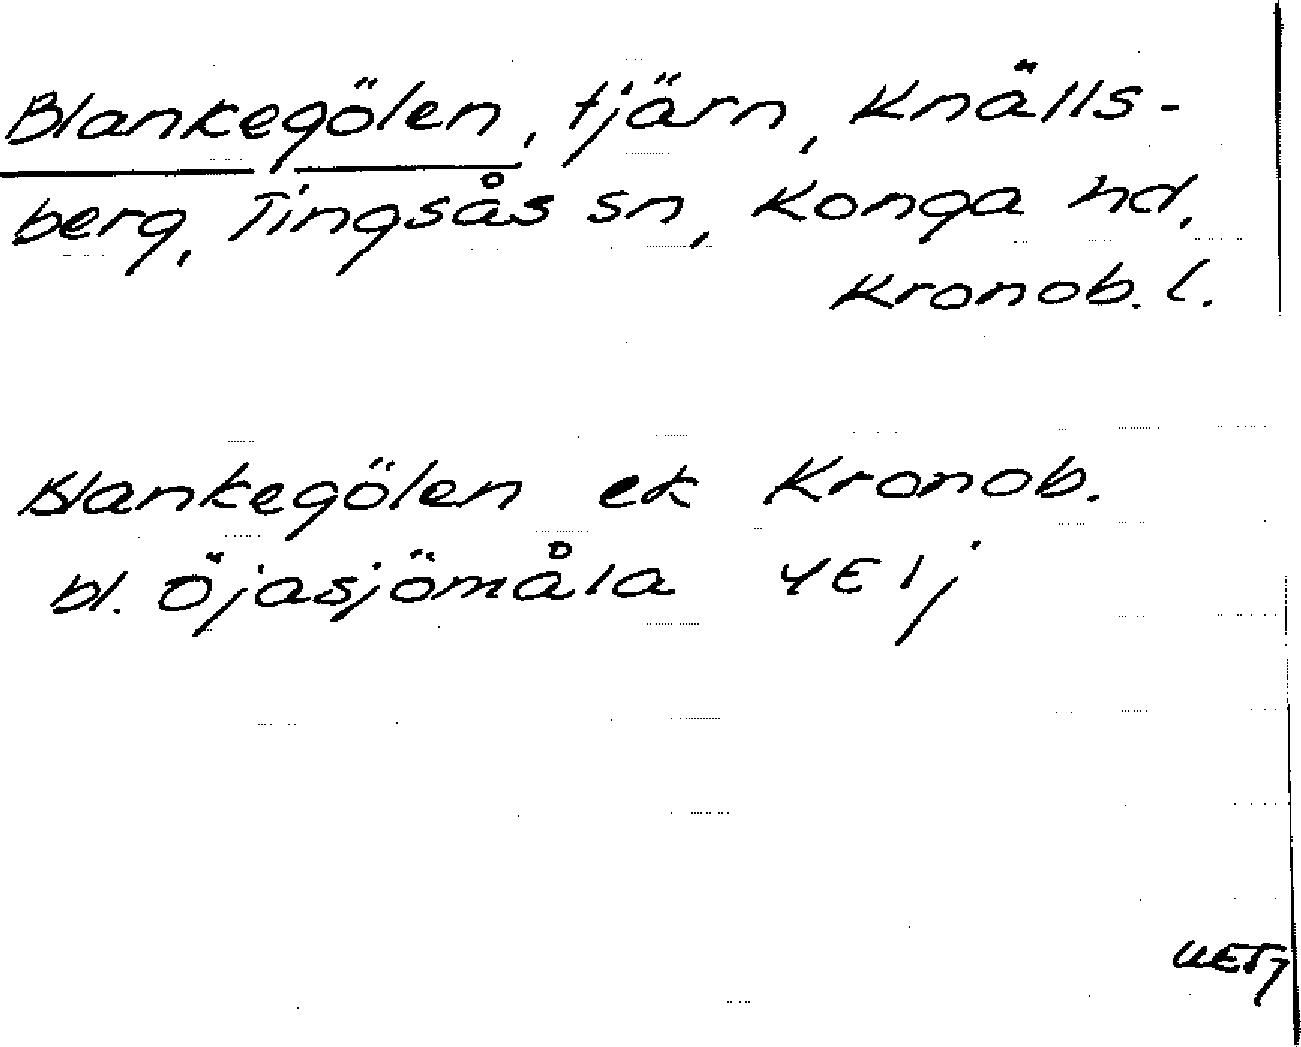 Blankegölen, tjärn, Knälls-
berg, Tingsås sn, Konga hd,
Kronob. l.
Blankegölen ek Kronob.
bl. Öjasjömåla 4E1j